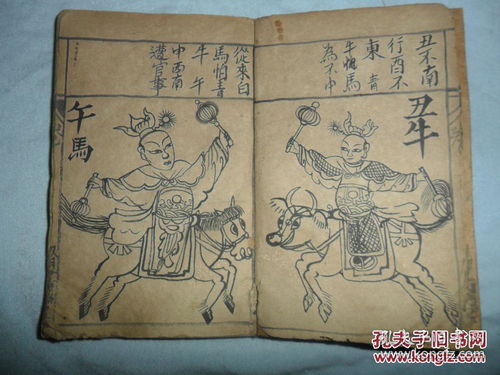 丑不南
行酉不
東青
牛
馬
為不中
丑牛
從來白
馬怕青
牛午
中西南
遭官事
午馬
孔夫子旧书网
www.kongfz.com